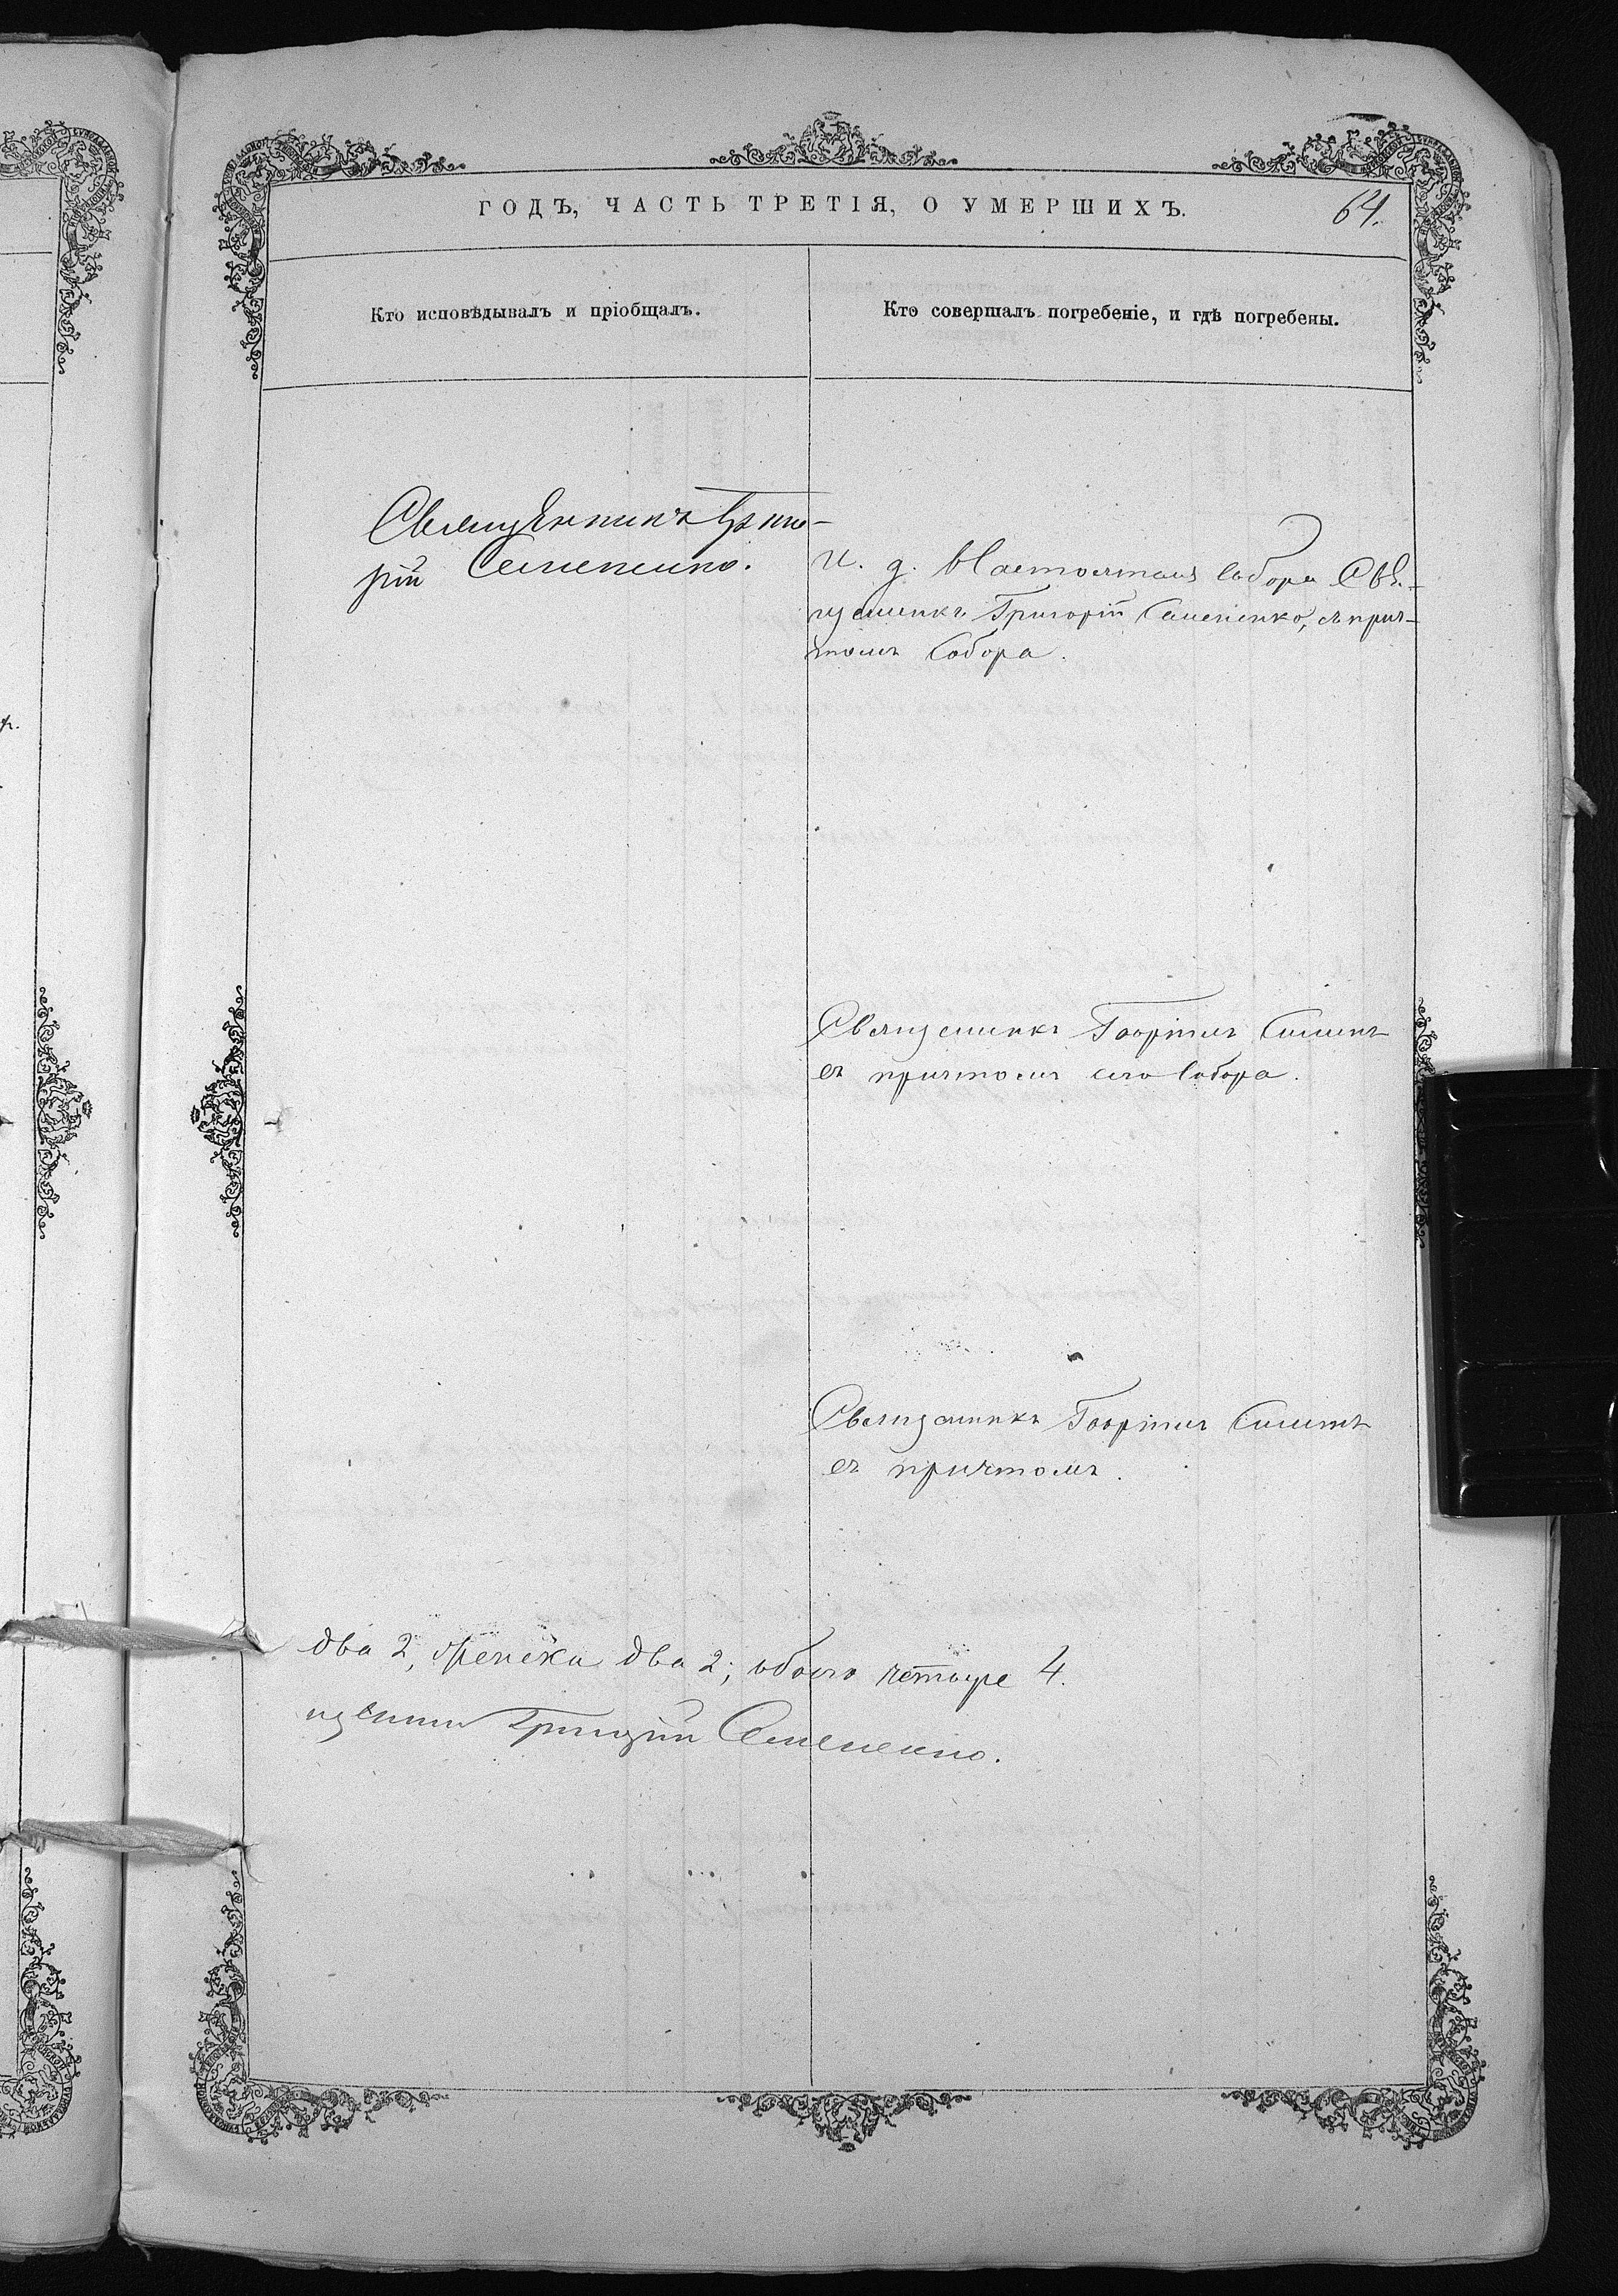 ГОДЪ, ЧАСТЬ ТРЕТІЯ, О УМЕРШИХЪ.
64.
Кто исповѣдывалъ и пріобщалъ.
Кто совершалъ погребеніе, и гдѣ погребены.
Священникъ Григо-
рій Семененко.
И. д. Настоятеля Собора Свя-
щенникъ Григорій Семененко, съ прич-
томъ Собора.
Священникъ Гавріилъ
съ причтомъ сего Собора.
Священникъ Гавріилъ
съ причтомъ.
два 2, женска два 2; обоего четыре 4.
щенникъ Григорій Семененко.